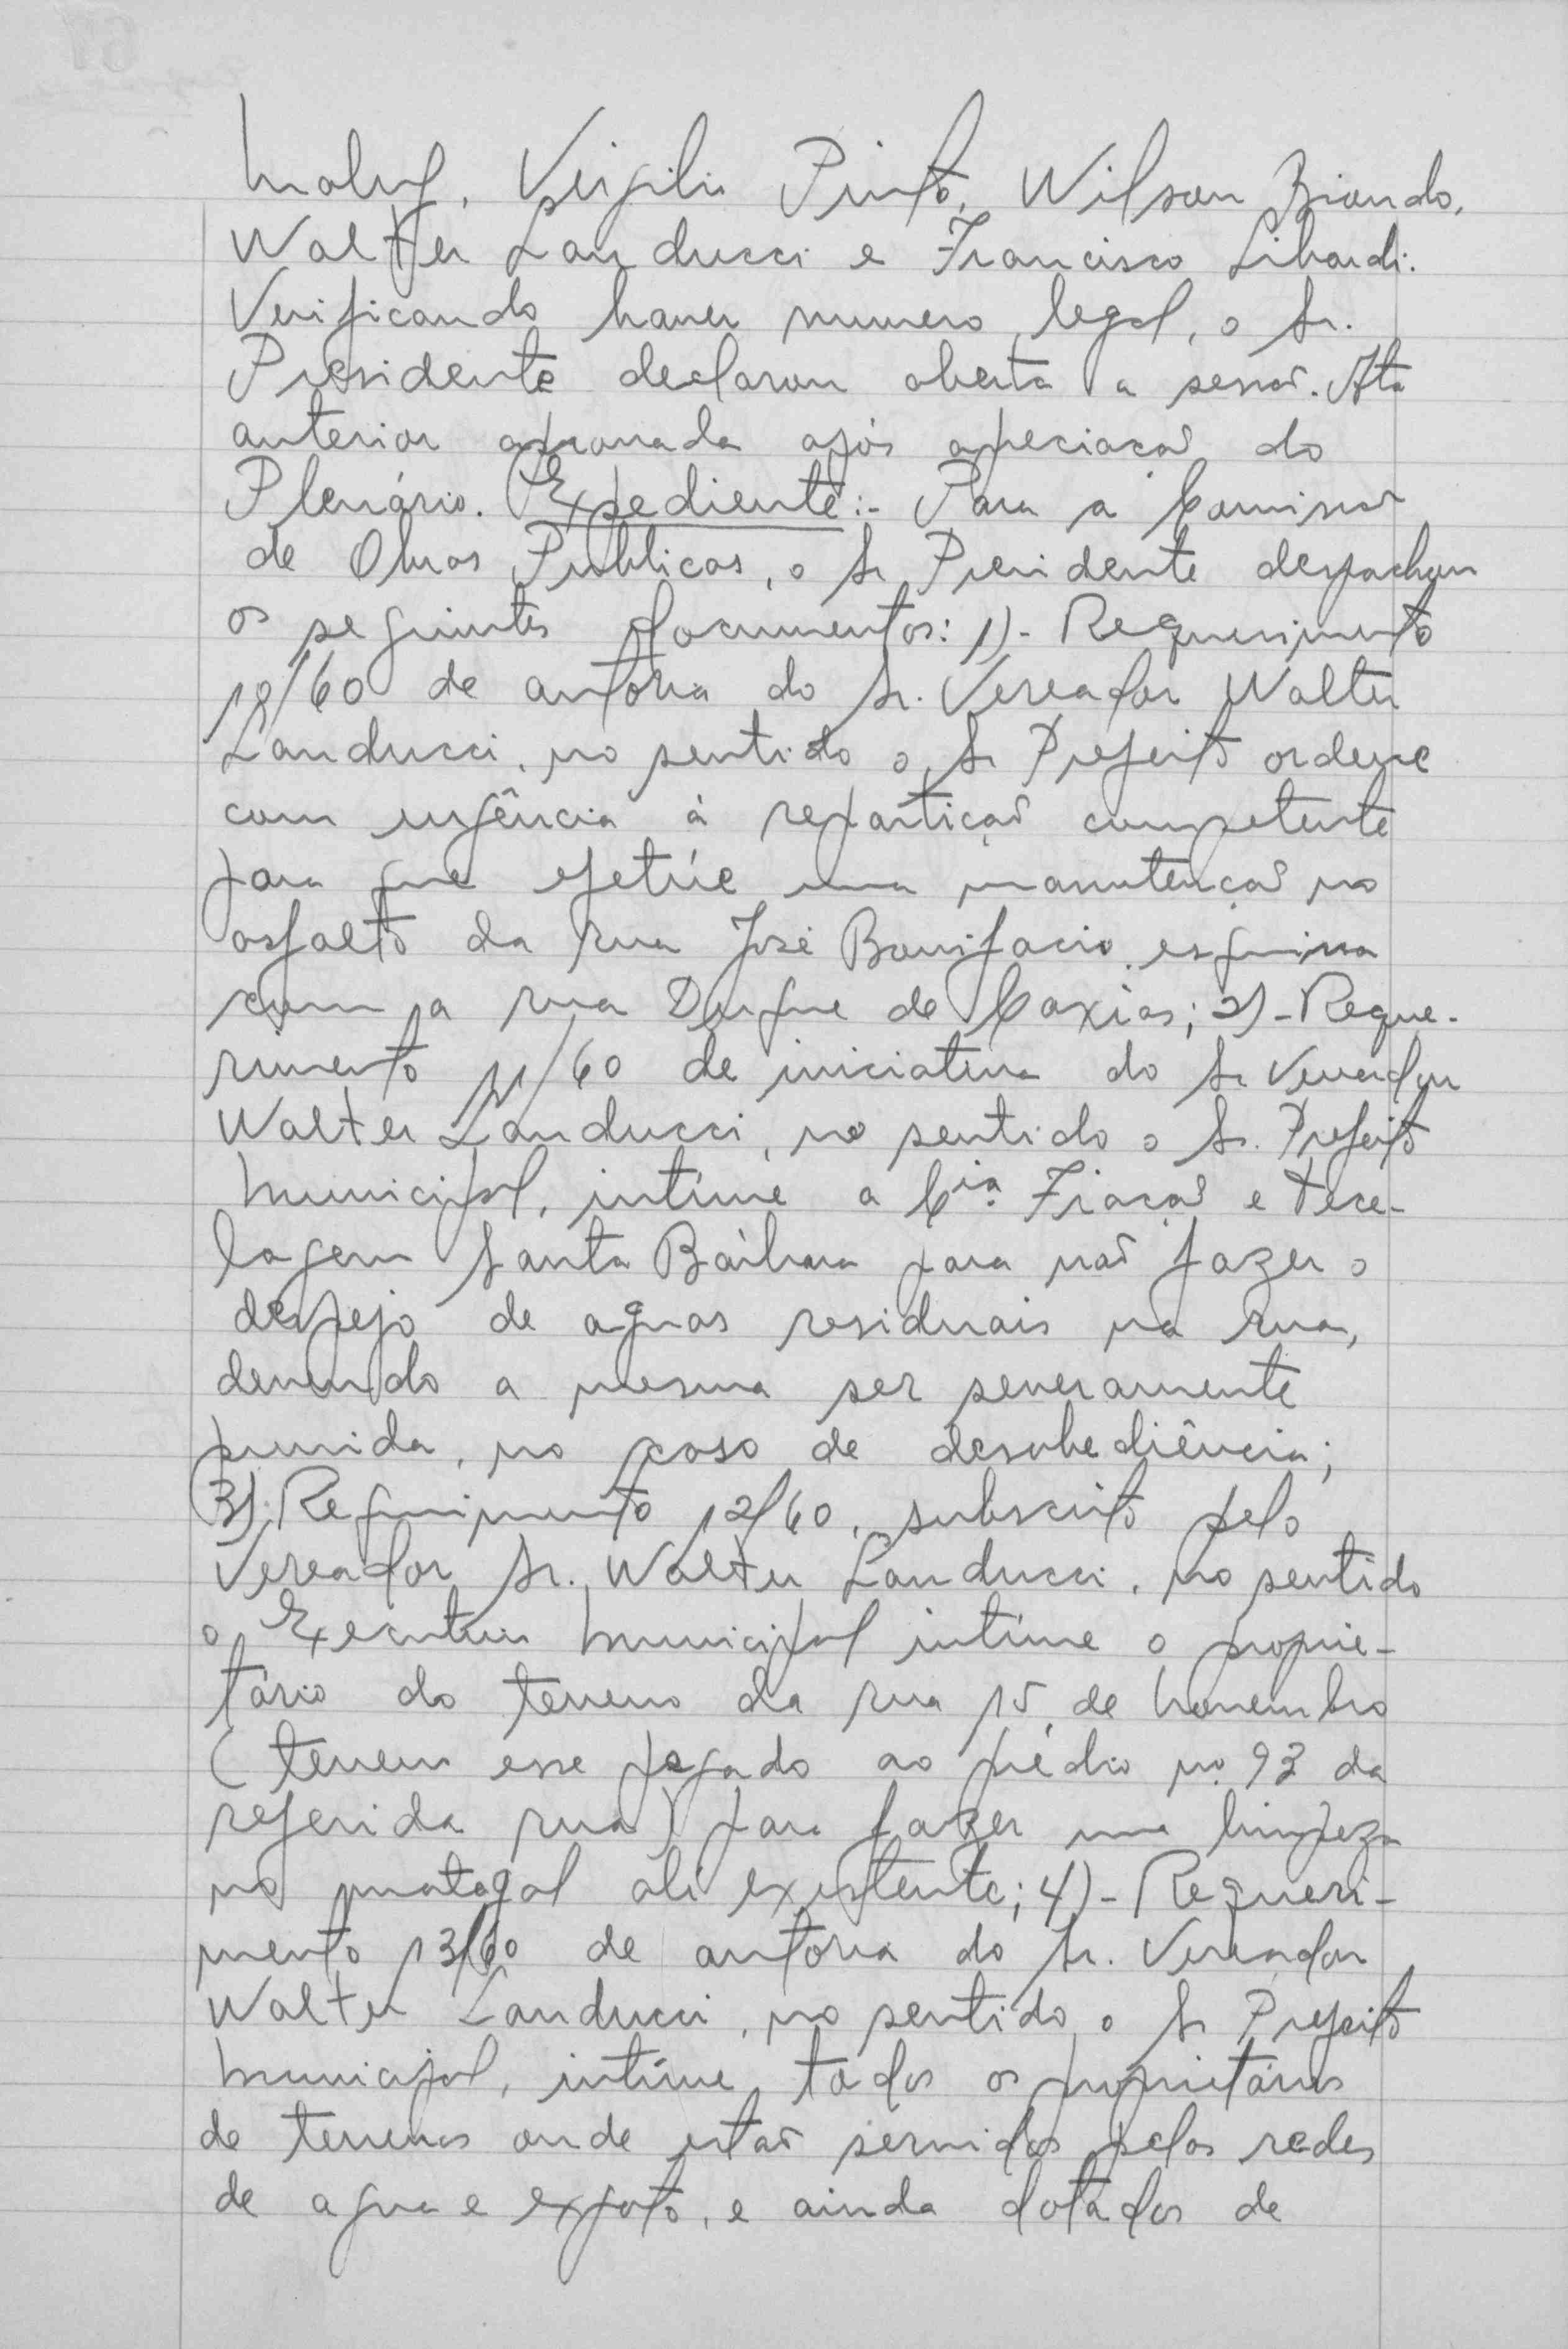 Maluf, Virgilio Pinto, Wilson Biondo,
Walter Landucci e Francisco Libardi.
Verificando haver numero legal, o Sr.
Presidente declarou aberta a sessão. Ata
anterior aprovada após apeciação do
Plenário. Expediente:- Para a Comissão
de Obras Publicas, o Sr Presidente despachou
os seguintes documentos: 1)- Requerimento
10/60 de autoria do Sr. Vereador Walter
Landucci, no sentido o Sr Prefeito ordene
com urgência à repartição competente
para que efetúe uma manutenção no
asfalto da rua José Bonifacio, esquina
com a rua Duque de Caxias; 2)- Reque-
rimento 11/60 de iniciativa do Sr Vereador
Walter Landucci, no sentido o Sr. Prefeito
Municipal, intíme a Cia. Fiação e Tece-
lagem Santa Bárbara para não fazer o
despejo de aguas residuais na rua,
devendo a mesma ser severamente
punida, no caso de desobediência;
3)- Requerimento 12/60, subscrito pelo
Vereador Sr. Walter Landucci, no sentido
o Executivo Municipal intíme o proprie-
tário do terreno da rua 15 de Novembro
(terreno esse pegado ao prédio no. 93 da
referida rua) para fazer uma limpeza
no matagal ali existente; 4)- Requeri-
mento 13/60 de autoria do Sr. Vereador
Walter Landucci, no sentido o Sr Prefeito
Municipal, intíme todos os proprietários
de terrenos onde estão servidos pelas redes
de agua e exgoto, e ainda dotados de